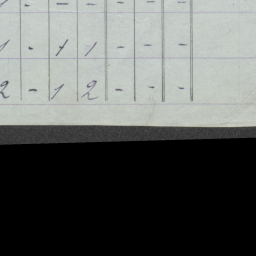 1 - - - - - -
1 - 1 1 - - -
2 - 1 2 - - -